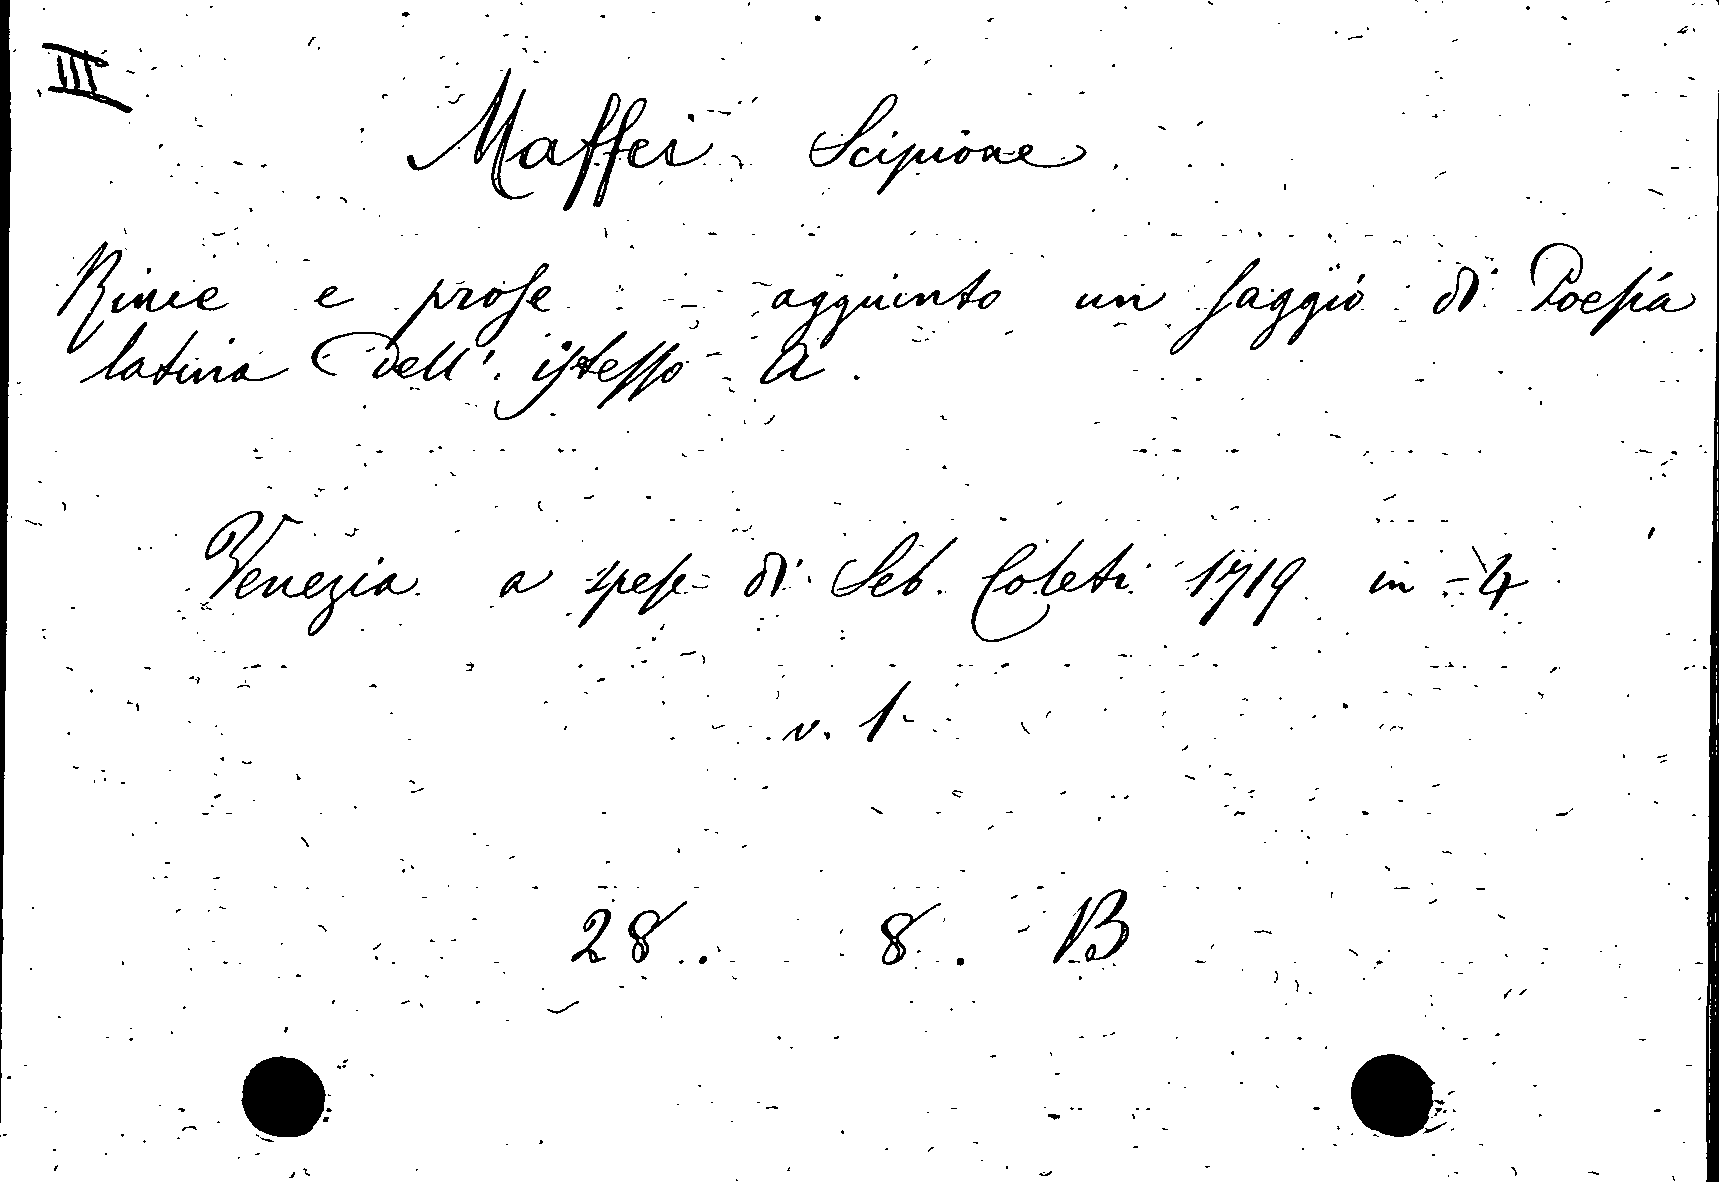 III
Maffei Scipione
Rime e prose - aggiunto un saggio di Poesia
latina dell' istesso A.
Venezia a spese di Seb. Coleti 1719 in-4
v. 1
28. 8. B